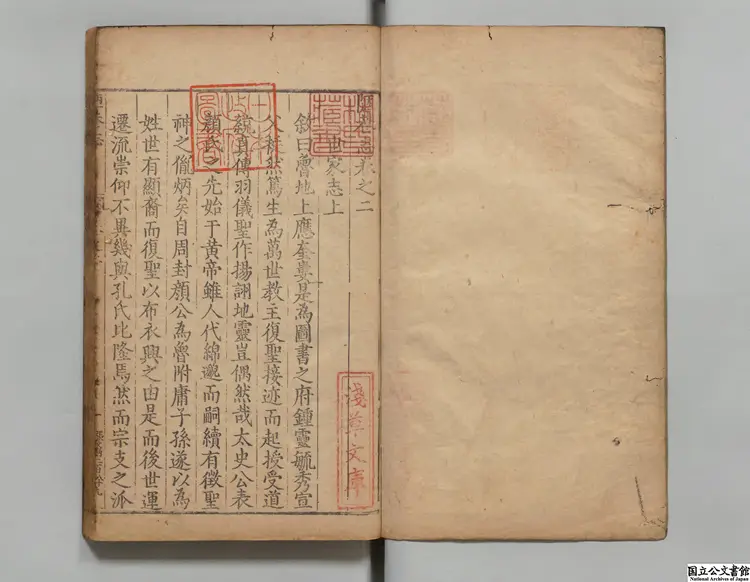 陋巷志卷之二
世家志上
敘曰魯地上應奎婁是為圖書之府鍾靈毓秀宣
父挺然篤生為萬世教主復聖接迹而起授受道
統真傳羽儀聖作揚詡地靈豈偶然哉太史公表
顏氏之先始于黃帝雖人代綿邈而嗣續有徵聖
神之胤炳矣自周封顏公為魯附庸子孫遂以為
姓世有顯裔而復聖以布衣興之由是而後世運
遷流崇仰不異幾與孔氏比隆焉然而宗支之派
陋巷志
淺草文庫
林氏藏書
国立公文書館
National Archives of Japan